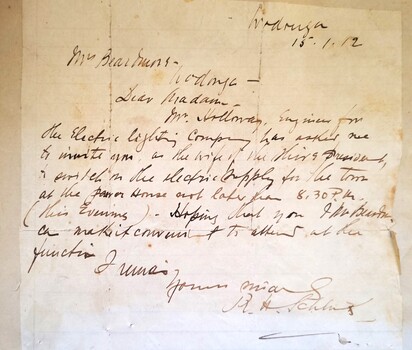 Wodonga
15.1.12
Mrs Beardmore -
Wodonga -
Dear Madam -
Mr. Holloway, Engineer for
the Electric Lighting Company has asked me
to invite you, as the wife of the Shire President,
to switch on the electric supply for the town
at the Power House not later than 8.30 P.m.
(this Evening) - Hoping that you & Mr Beardmore
can make it convenient to attend at the
function I remain
Yours